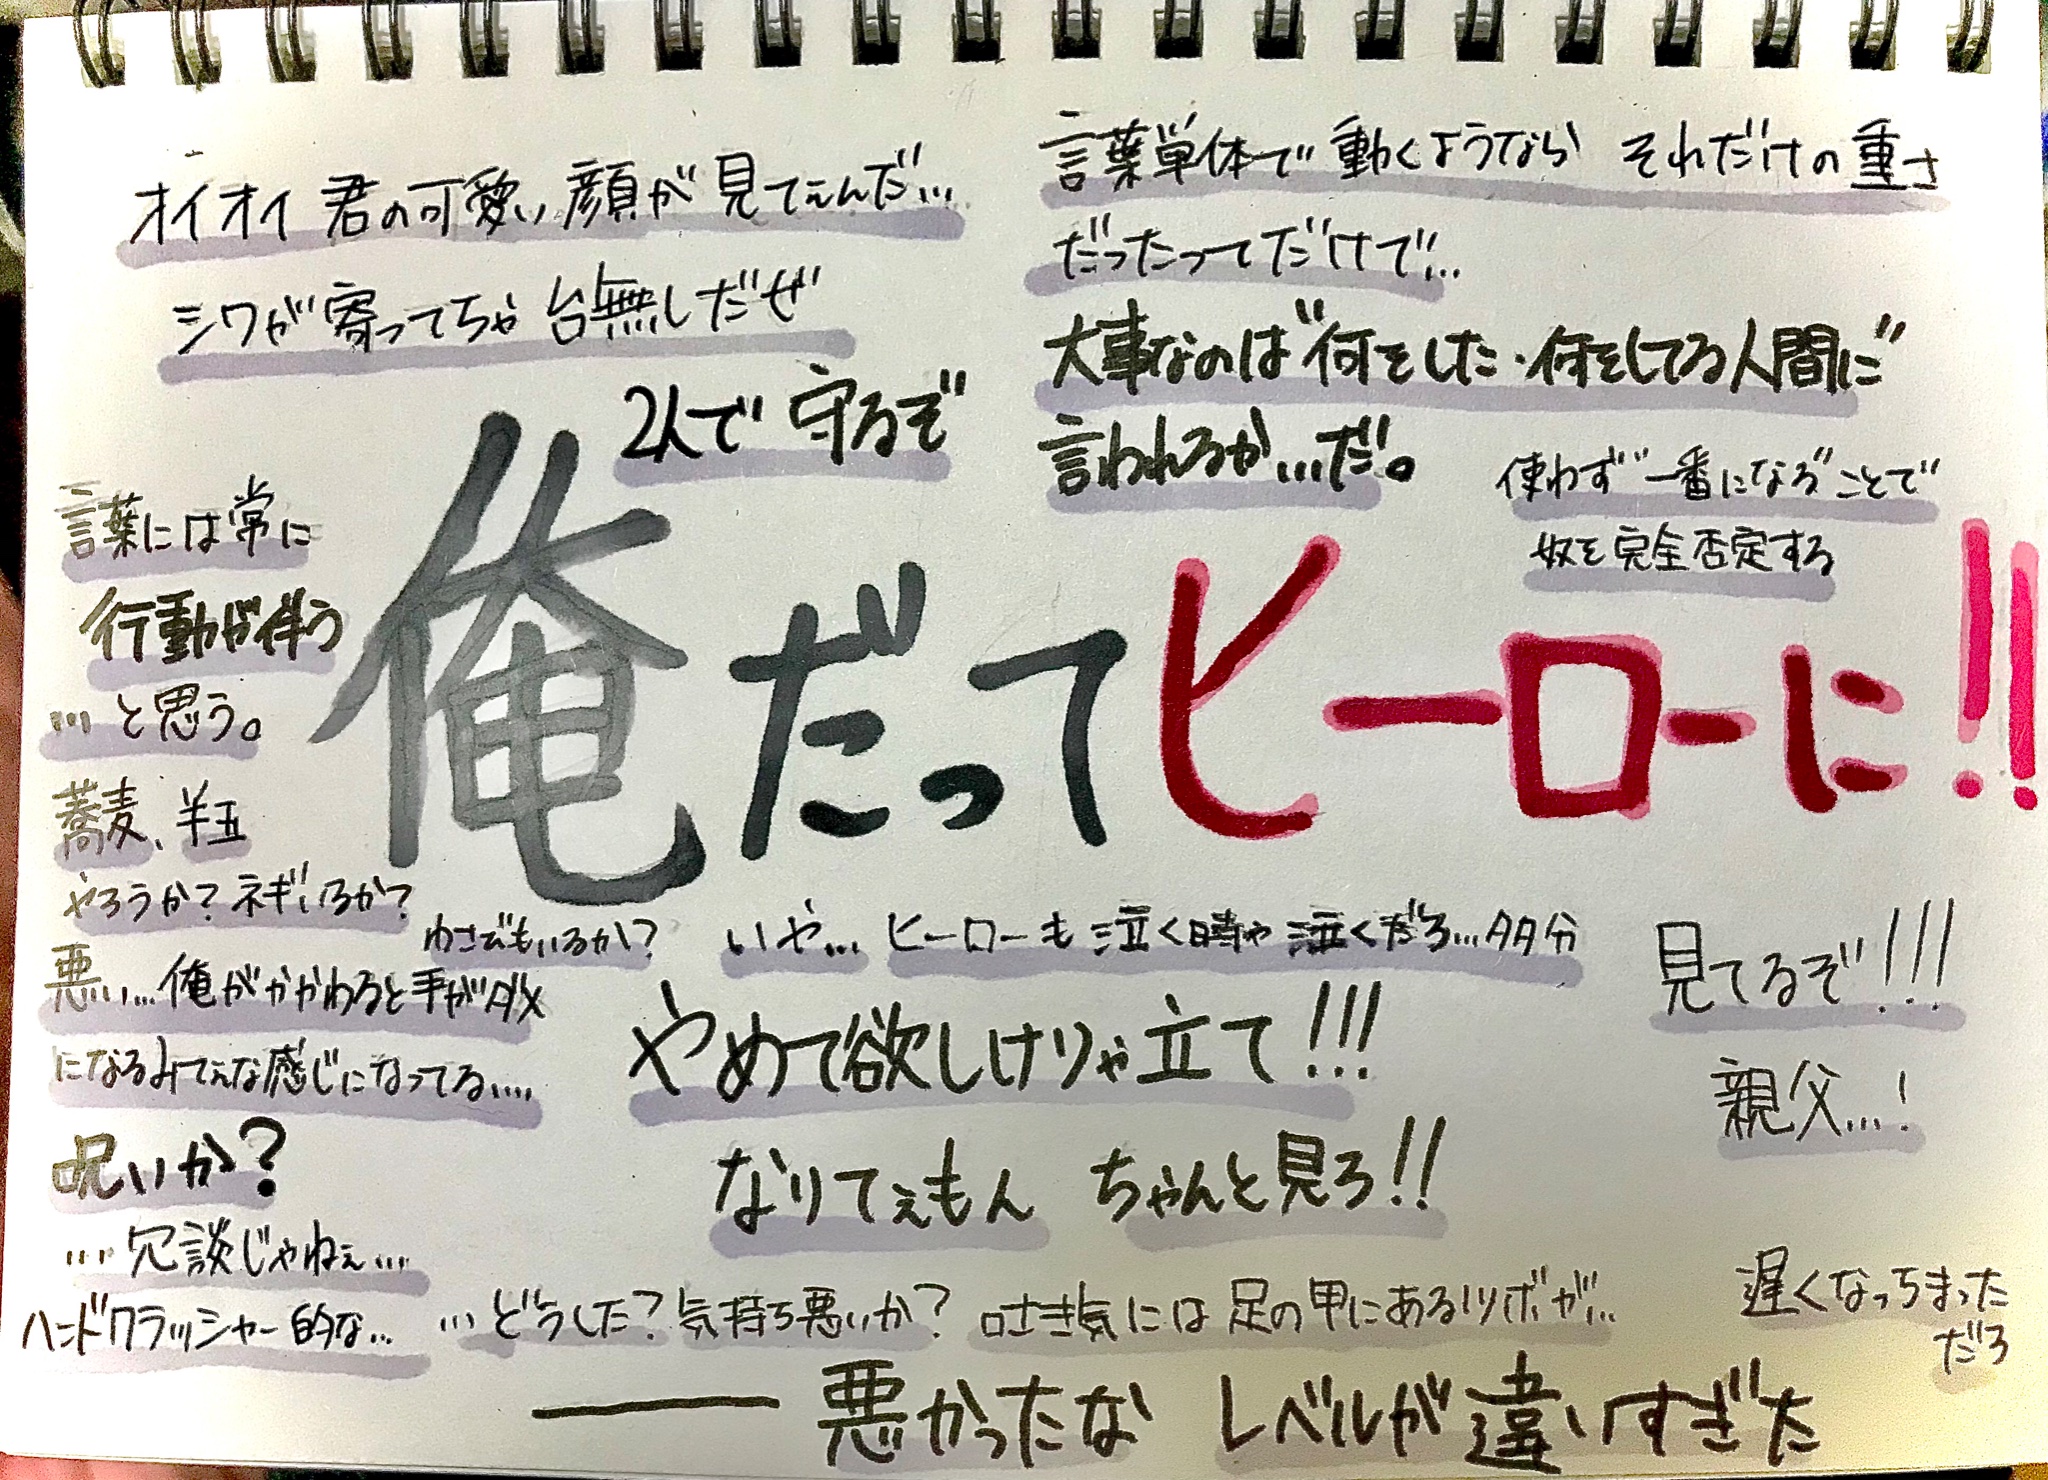 オイオイ 君の可愛い顔が見てぇんだ…
シワが寄ってちゃ台無しだぜ
言葉単体で動くようなら それだけの重さ
だったってだけで…
大事なのは"何をした・何をしてる人間に"
言われるか…だ。
2人で守るぞ
使わず"一番になる"ことで
奴を完全否定する
言葉には常に
行動が伴う
…と思う。
俺だってヒーローに!!
蕎麦、半玉
やろうか?ネギいるか?
わさびもいるか?
悪い…俺がかかわると手がダメ
になるみてぇな感じになってる….
呪いか?
…冗談じゃねぇ…
ハンドクラッシャー的な…
いや… ヒーローも泣く時ゃ泣くだろ…多分
やめて欲しけりゃ立て!!!
なりてぇもん ちゃんと見ろ!!
見てるぞ!!!
親父…!
…どうした?気持ち悪いか? 吐き気には足の甲にあるツボが…
遅くなっちまった
だろ
── 悪かったな レベルが違いすぎた